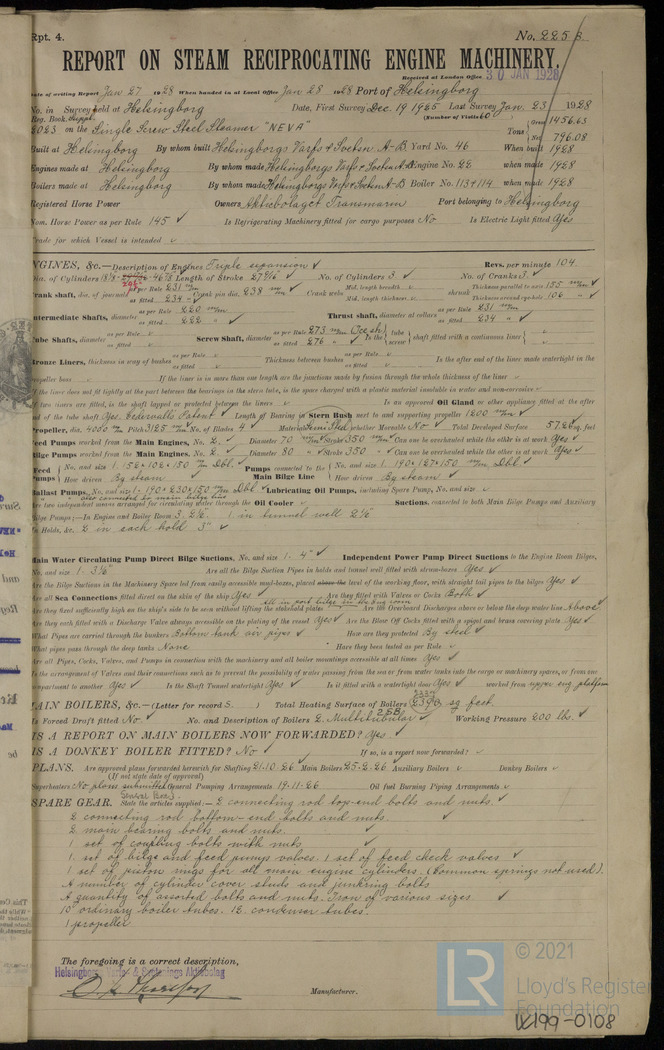 Rpt. 4.
No. 2258
REPORT ON STEAM RECIPROCATING ENGINE MACHINERY.
Received at London Office 30 JAN 1928
Date of writing Report Jan 27 1928 When handed in at Local Office Jan 28 1928 Port of Helsingborg
No. in Survey held at Helsingborg Date, First Survey Dec. 19 1925 Last Survey Jan. 23 1928
Reg. Book. Suppl. (Number of Visits 60)
2023 on the Single Screw Steel Steamer "NEVA" Tons Gross 1456.63 Net 796.08
Built at Helsingborg By whom built Helsingborgs Varfs & Svetsn A-B Yard No. 46 When built 1928
Engines made at Helsingborg By whom made Helsingborgs Varfs & Svetsn A-B Engine No. 22 when made 1928
Boilers made at Helsingborg By whom made Helsingborgs Varfs & Svetsn A-B Boiler No. 113+114 when made 1928
Registered Horse Power Owners Aktiebolaget Transmarin Port belonging to Helsingborg
Nom. Horse Power as per Rule 145 ✓ Is Refrigerating Machinery fitted for cargo purposes No Is Electric Light fitted Yes
Trade for which Vessel is intended
ENGINES, &c.—Description of Engines Triple expansion ✓ Revs. per minute 104
No. of Cylinders Length of Stroke 27 9/16 ✓ No. of Cylinders 3 ✓ No. of Cranks 3 ✓
Crank shaft, dia. of journals as per Rule 231 m/m as fitted 234 Crank pin dia. 238 m/m Crank webs Mid. length breadth Mid. length thickness shrunk Thickness parallel to axis 155 m/m Thickness around eyehole 106
Intermediate Shafts, diameter as per Rule 220 m/m as fitted 222 Thrust shaft, diameter at collars as per Rule 231 m/m as fitted 234
Tube Shafts, diameter as per Rule as fitted Screw Shaft, diameter as per Rule 273 m/m as fitted 276 Is the tube screw shaft fitted with a continuous liner
Bronze Liners, thickness in way of bushes as per Rule as fitted Thickness between bushes as per Rule as fitted Is the after end of the liner made watertight in the
propeller boss If the liner is in more than one length are the junctions made by fusion through the whole thickness of the liner
If the liner does not fit tightly at the part between the bearings in the stern tube, is the space charged with a plastic material insoluble in water and non-corrosive
If two liners are fitted, is the shaft lapped or protected between the liners Is an approved Oil Gland or other appliance fitted at the after
end of the tube shaft Yes. Cedervalls Patent ✓ Length of Bearing in Stern Bush next to and supporting propeller 1200 m/m ✓
Propeller, dia. 4000 m/m Pitch 3125 m/m No. of Blades 4 ✓ Material Semi Steel whether Moveable No ✓ Total Developed Surface 57.26 sq. feet
Feed Pumps worked from the Main Engines, No. 2 ✓ Diameter 70 m/m Stroke 350 m/m Can one be overhauled while the other is at work Yes ✓
Bilge Pumps worked from the Main Engines, No. 2 ✓ Diameter 80 ✓ Stroke 350 ✓ Can one be overhauled while the other is at work Yes ✓
Feed Pumps No. and size 1. 152 × 102 × 150 m/m Dbl. ✓ How driven By steam ✓ Pumps connected to the Main Bilge Line No. and size 1. 190 × 127 × 150 m/m Dbl. ✓ How driven By steam ✓
Ballast Pumps, No. and size 1. 190 × 230 × 150 m/m Dbl ✓ Lubricating Oil Pumps, including Spare Pump, No. and size
also connected to main bilge line
Are two independent means arranged for circulating water through the Oil Cooler Suctions, connected to both Main Bilge Pumps and Auxiliary
Bilge Pumps;—In Engine and Boiler Room 3. 2½" 1 in tunnel well 2½"
In Holds, &c. 2 in each hold 3" ✓
Main Water Circulating Pump Direct Bilge Suctions, No. and size 1. 4" ✓ Independent Power Pump Direct Suctions to the Engine Room Bilges,
No. and size 1. 3½" ✓ Are all the Bilge Suction Pipes in holds and tunnel well fitted with strum-boxes Yes ✓
Are the Bilge Suctions in the Machinery Space led from easily accessible mud-boxes, placed above the level of the working floor, with straight tail pipes to the bilges Yes ✓
Are all Sea Connections fitted direct on the skin of the ship Yes ✓ Are they fitted with Valves or Cocks Both ✓
Are they fixed sufficiently high on the ship's side to be seen without lifting the stokehold plates Are the Overboard Discharges above or below the deep water line Above ✓
Are they each fitted with a Discharge Valve always accessible on the plating of the vessel Yes ✓ Are the Blow Off Cocks fitted with a spigot and brass covering plate Yes ✓
What Pipes are carried through the bunkers Bottom tank air pipes ✓ How are they protected By steel ✓
What pipes pass through the deep tanks None Have they been tested as per Rule
Are all Pipes, Cocks, Valves, and Pumps in connection with the machinery and all boiler mountings accessible at all times Yes ✓
Is the arrangement of Valves and their connections such as to prevent the possibility of water passing from the sea or from water tanks into the cargo or machinery spaces, or from one
compartment to another Yes ✓ Is the Shaft Tunnel watertight Yes ✓ Is it fitted with a watertight door Yes ✓ worked from upper eng. platform
MAIN BOILERS, &c.—(Letter for record S.) Total Heating Surface of Boilers 2390 sq feet.
Is Forced Draft fitted No ✓ No. and Description of Boilers 2. Multitubular ✓ 2SB Working Pressure 200 lbs. ✓
IS A REPORT ON MAIN BOILERS NOW FORWARDED? Yes ✓
IS A DONKEY BOILER FITTED? No ✓ If so, is a report now forwarded?
PLANS. Are approved plans forwarded herewith for Shafting 21.10.26 Main Boilers 25.2.26 Auxiliary Boilers Donkey Boilers
(If not state date of approval)
Superheaters No plans submitted General Pumping Arrangements 19.11.26 Oil fuel Burning Piping Arrangements
SPARE GEAR. State the articles supplied:— 2 connecting rod top-end bolts and nuts. ✓
2 connecting rod bottom-end bolts and nuts. ✓
2 main bearing bolts and nuts. ✓
1 set of coupling bolts with nuts ✓
1 set of bilge and feed pumps valves. 1 set of feed check valves ✓
1 set of piston rings for all main engine cylinders. (Common springs not used).
A number of cylinder cover studs and junkring bolts
A quantity of assorted bolts and nuts. Iron of various sizes ✓
10 ordinary boiler tubes. 12 condenser tubes.
1 propeller
The foregoing is a correct description,
Helsingborgs Varfs- & Svetsnings Aktiebolag
Manufacturer.
© 2021
LR
Lloyd's Register
Foundation
LR199-0108